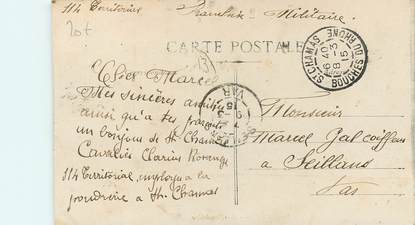 114 Territorien Franchise Militaire
20t
CARTE POSTALE
13
ST CHAMAS
16 45
8 -3
15
BOUCHES DU RHONE
Cher Marcel
Mes sincères amitiés
ainsi qu'a tes parents
un bonjour de St Chamas
Cavalier Clarius
114 Territorial, employé a la
poudrerie a St. Chamas
9 -3
15
VAR
Monsieur
Marcel Gal coiffeur
a Seillans
Var